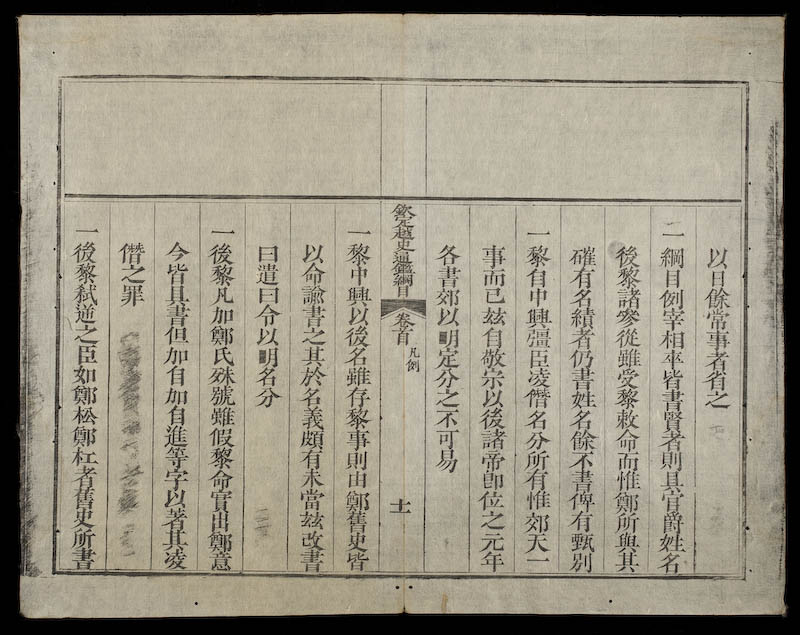 以日餘常事者省之
一綱目例宰相卒皆書賢者則具官爵姓名
後黎諸參從雖受黎敕命而惟鄭所與其
確有名績者仍書姓名餘不書俾有甄別
一黎自中興彊臣凌僭名分所有惟郊天一
事而已玆自敬宗以後諸帝即位之元年
各書郊以明定分之不可易
欽定越史通鑑綱目 卷首 凡例 十一
一黎中興以後名雖存黎事則由鄭舊史皆
以命諭書之其於名義頗有未當玆改書
曰遣曰令以明名分
一後黎凡加鄭氏殊號雖假黎命實出鄭意
今皆具書但加自加自進等字以著其凌
僭之罪
一後黎弑逆之臣如鄭松鄭杠者舊史所書